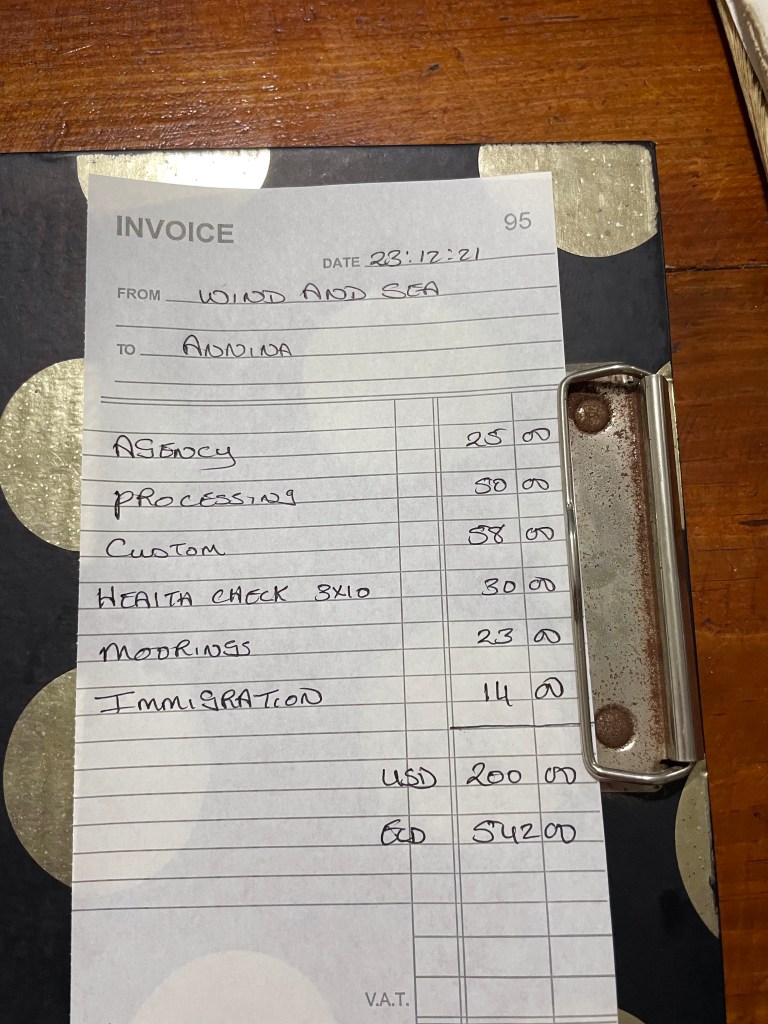 INVOICE 95
DATE 23:12:21
FROM WIND AND SEA
TO ANNINA
AGENCY 25 00
PROCESSING 50 00
CUSTOM 58 00
HEALTH CHECK 3X10 30 00
MOORINGS 23 00
IMMIGRATION 14 00
USD 200 00
ECD 542 00
V.A.T.